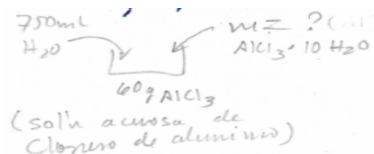 750mL
H₂O
m = ?
AlCl₃ • 10 H₂O
60g AlCl₃
(sol'n acuosa de
Cloruro de aluminio)